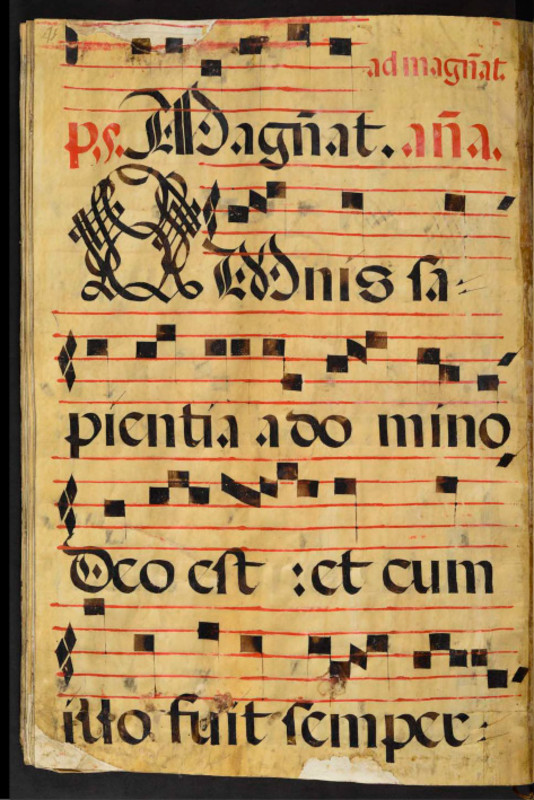 ad magñat.
ps. Magñat. aña.
OMnis sa-
pientia a do mino
Deo est : et cum
illo fuit semper :